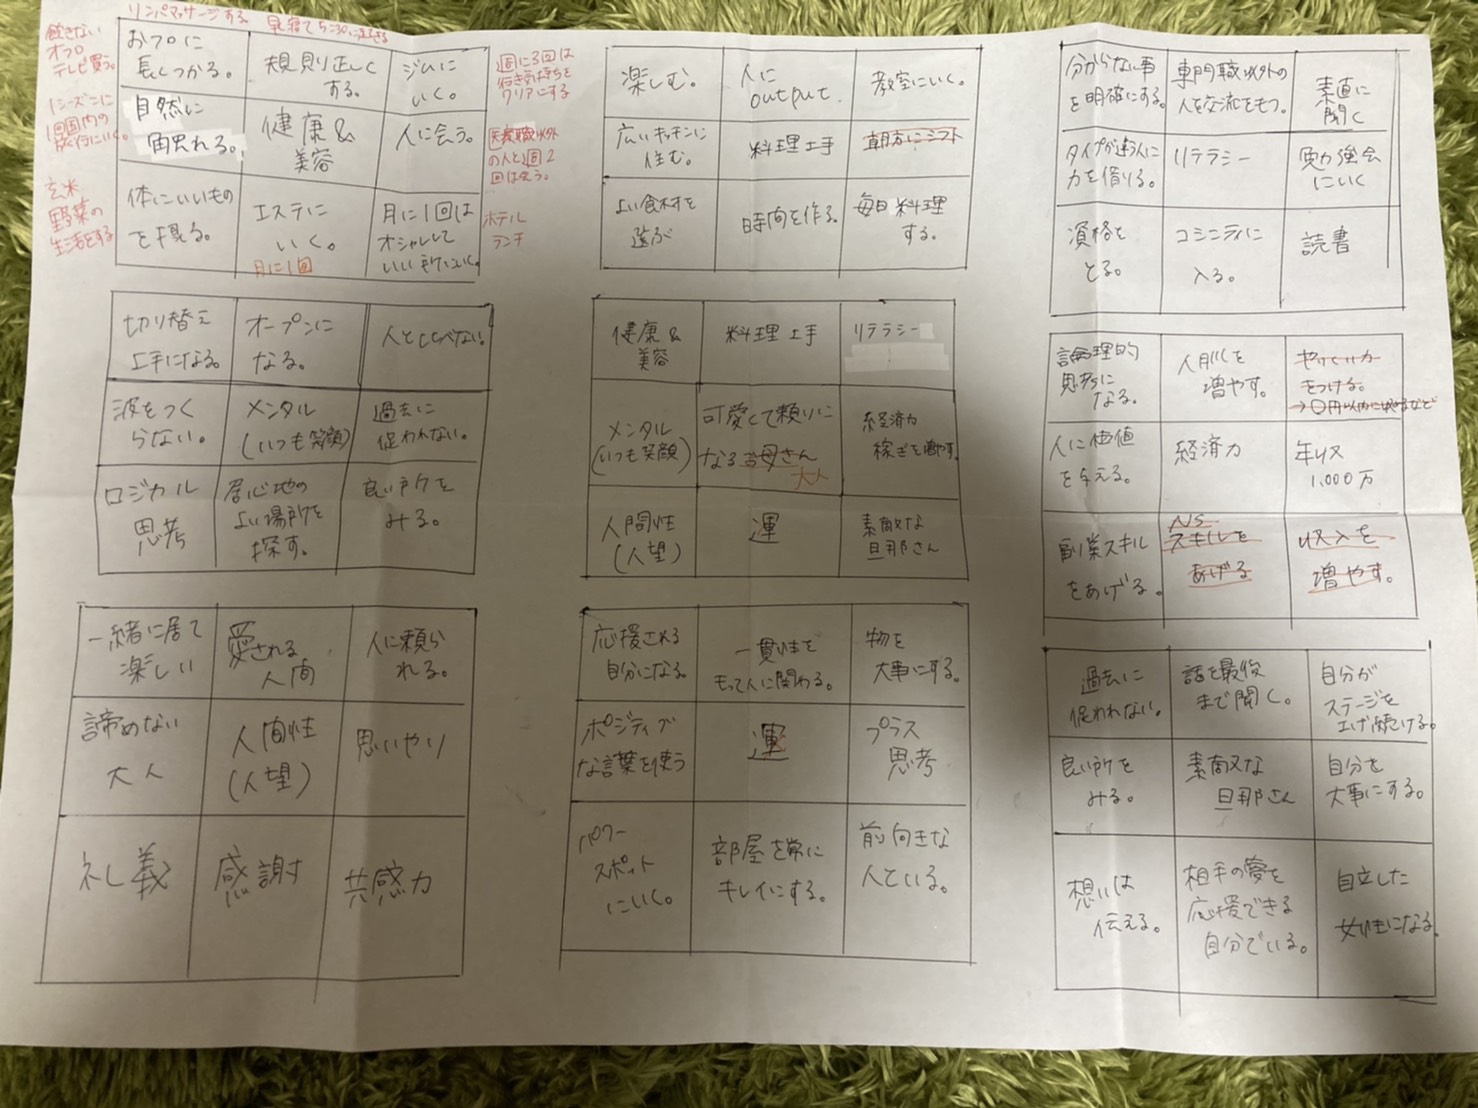 リンパマッサージする
早寝で5:30に
飽きない
オフロ
テレビ買う。
1シーズンに
1回国内の
旅行にいく。
玄米
野菜の
生活をする
おフロに
長くつかる。
規則正しく
する。
ジムに
いく。
自然に
触れる。
健康&
美容
人に会う。
体にいいもの
を摂る。
エステに
いく。
月に1回
月に1回は
オシャレして
いい所にいく。
週に3回は
行き気持ちを
クリアにする
医療職以外
の人と週2
回は会う。
ホテル
ランチ
楽しむ。
人に
output.
教室にいく。
広いキッチンに
住む。
料理上手
朝方にシフト
よい食材を
選ぶ
時間を作る。
毎日料理
する。
分からない事
を明確にする。
専門職以外の
人と交流をもつ。
素直に
聞く
タイプが違う人に
力を借りる。
リテラシー
勉強会
にいく
資格を
とる。
コミニティに
入る。
読書
切り替え
上手になる。
オープンに
なる。
人とくらべない。
波をつく
らない。
メンタル
(いつも笑顔)
過去に
促われない。
ロジカル
思考
居心地の
よい場所を
探す。
良い所を
みる。
健康&
美容
料理上手
リテラシー
メンタル
(いつも笑顔)
可愛くて頼りに
なるお母さん
大人
経済力
稼ぎを増やす。
人間性
(人望)
運
素敵な
旦那さん
論理的
思考に
なる。
人脈を
増やす。
やりくり力
をつける。
→〇円以内に収めるなど
人に価値
を与える。
経済力
年収
1,000万
副業スキル
をあげる。
NS
スキルを
あげる
収入を
増やす。
一緒に居て
楽しい
愛される
人間
人に頼ら
れる。
諦めない
大人
人間性
(人望)
思いやり
礼義
感謝
共感力
応援される
自分になる。
一貫性を
もって人に関わる。
物を
大事にする。
ポジティブ
な言葉を使う
運
プラス
思考
パワー
スポット
にいく。
部屋を常に
キレイにする。
前向きな
人といる。
過去に
促われない。
話を最後
まで聞く。
自分が
ステージを
上げ続ける。
良い所を
みる。
素敵な
旦那さん
自分を
大事にする。
想いは
伝える。
相手の夢を
応援できる
自分でいる。
自立した
女性になる。